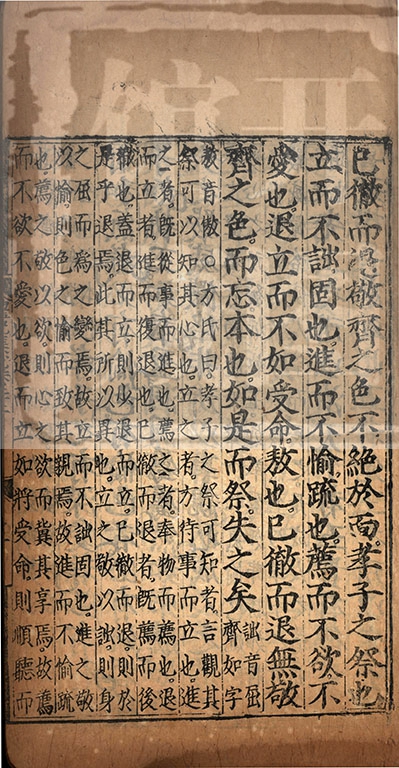 已徹而退敬齊之色不絕於面孝子之祭也
立而不詘固也進而不愉疏也薦而不欲不
愛也退立而不如受命敖也已徹而退無敬
齊之色而忘本也如是而祭失之矣
詘音屈
齊如字
敖音傲○方氏曰孝子之祭可知者言觀其
祭可以知其心也立之者方待事而立也進
之者旣從事而進也薦之者奉物而薦也退
而立者進而復退也已徹而退者旣薦而後
徹也蓋退而立則少退而立已徹而退則於
是乎退焉此其所以異也立之敬以詘則身
之屈而爲之變焉故立而不詘固也進之敬
以愉則色之愉而致其親焉故進而不愉疏
也薦之敬以欲則心之欲而冀其享焉故薦
而不欲不愛也退而立如將受命則順聽而